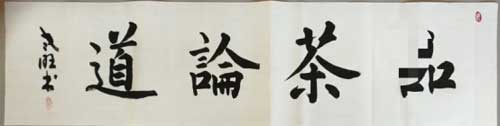 品茶論道